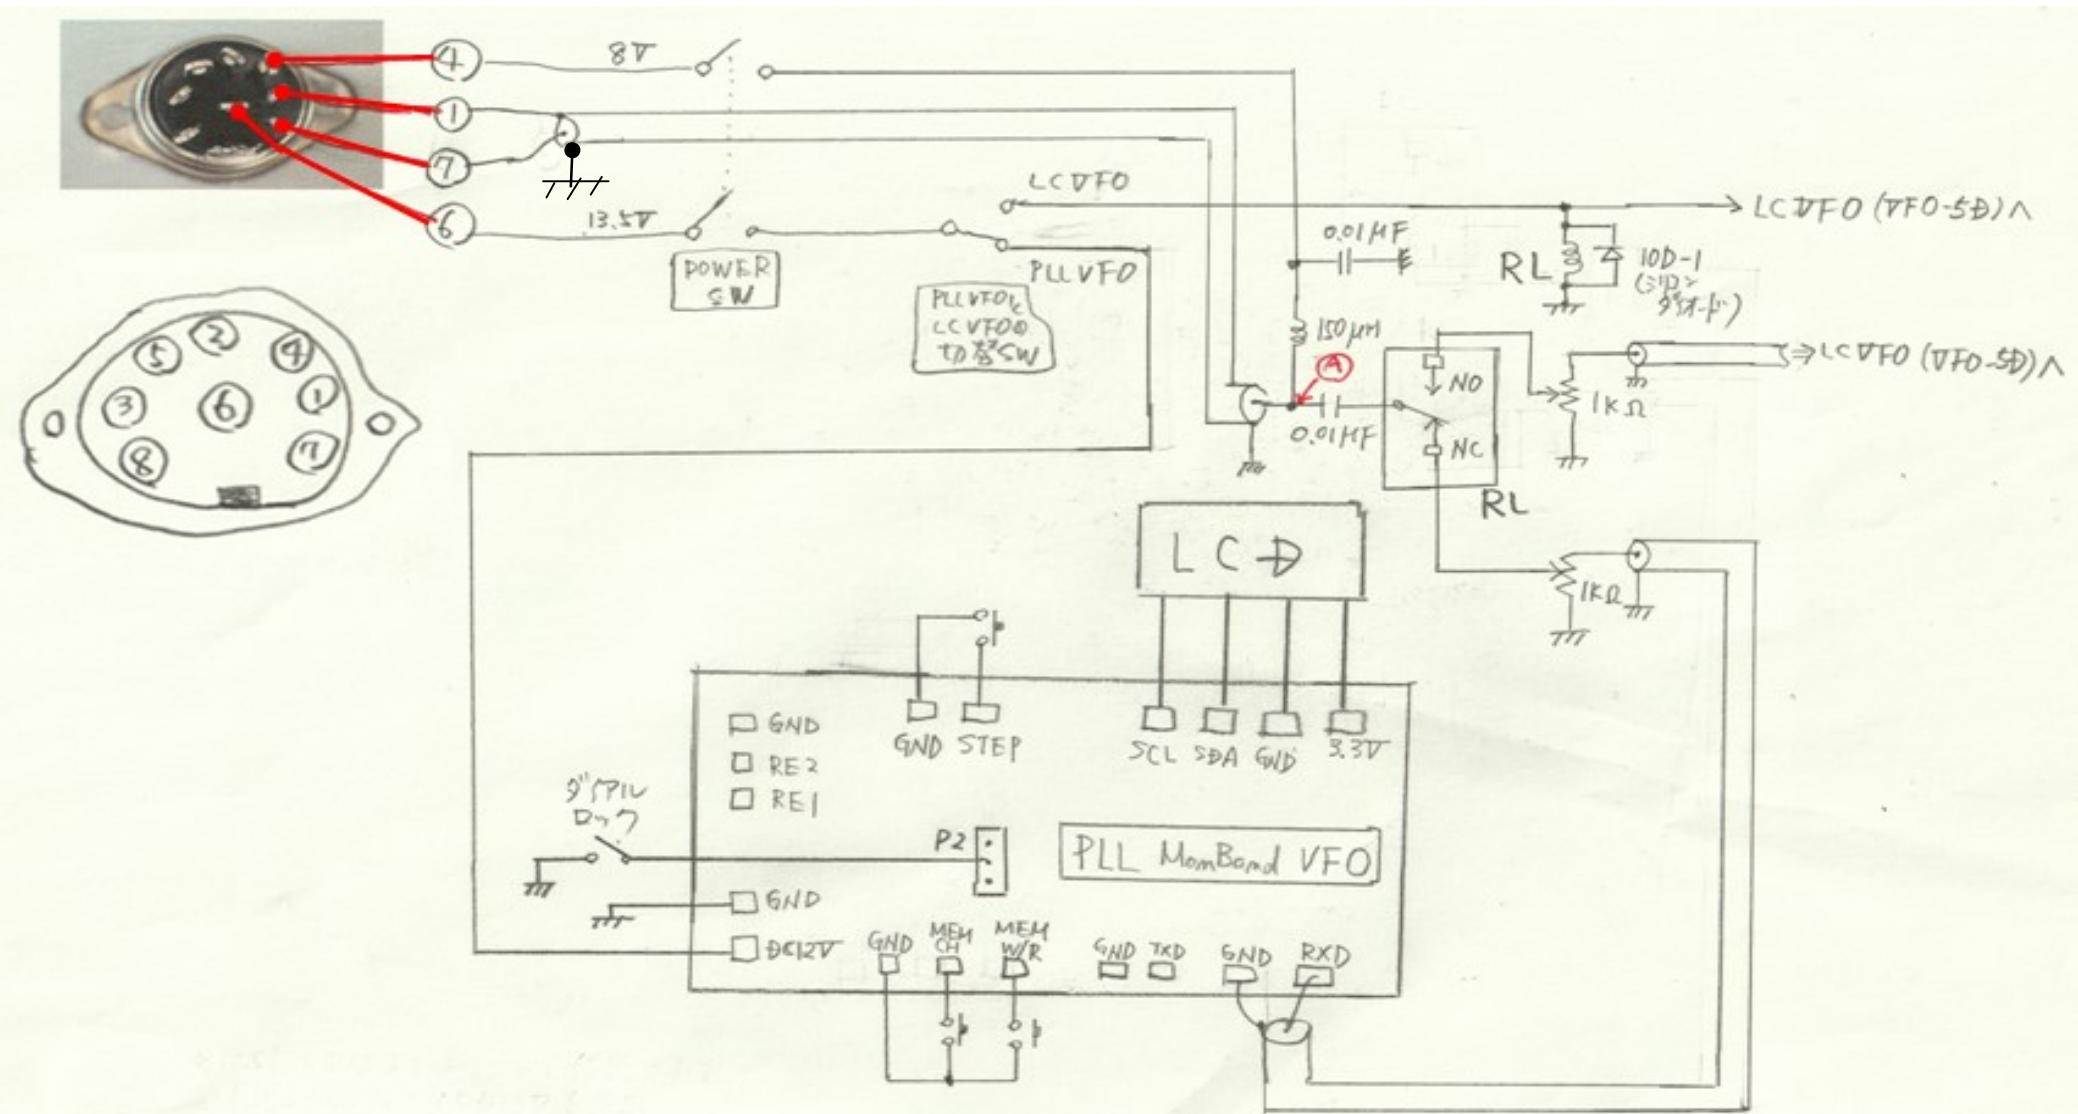 ④
8V
①
⑦
⑥
13.5V
POWER
SW
LCVFO
PLLVFO
PLLVFOと
LCVFOの
切替SW
LCVFO (VFO-5D)へ
0.01μF
RL
10D-1
(シリコン
ダイオード)
150μH
A
0.01μF
NO
NC
RL
1KΩ
LCVFO (VFO-5D)へ
1KΩ
②
⑤
④
③
⑥
①
⑧
⑦
LCD
GND
RE2
RE1
GND STEP
SCL SDA GND 3.3V
ダイアル
ロック
P2
PLL MomBand VFO
GND
DC12V
GND
MEM
CH
MEM
W/R
GND TXD
GND RXD